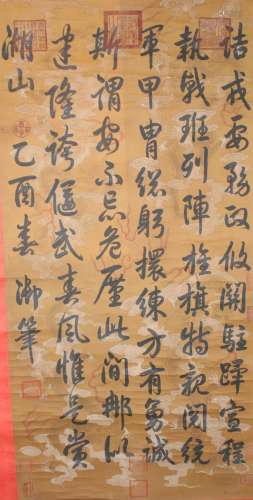 詰戎要務政攸關駐蹕宣程
執戟班列陣旌旗特親閱統
軍甲冑總躬擐練方有勇誠
斯謂安不忘危歷此間那似
建隆誇偃武春風惟是賞
湖山 乙酉春 御筆